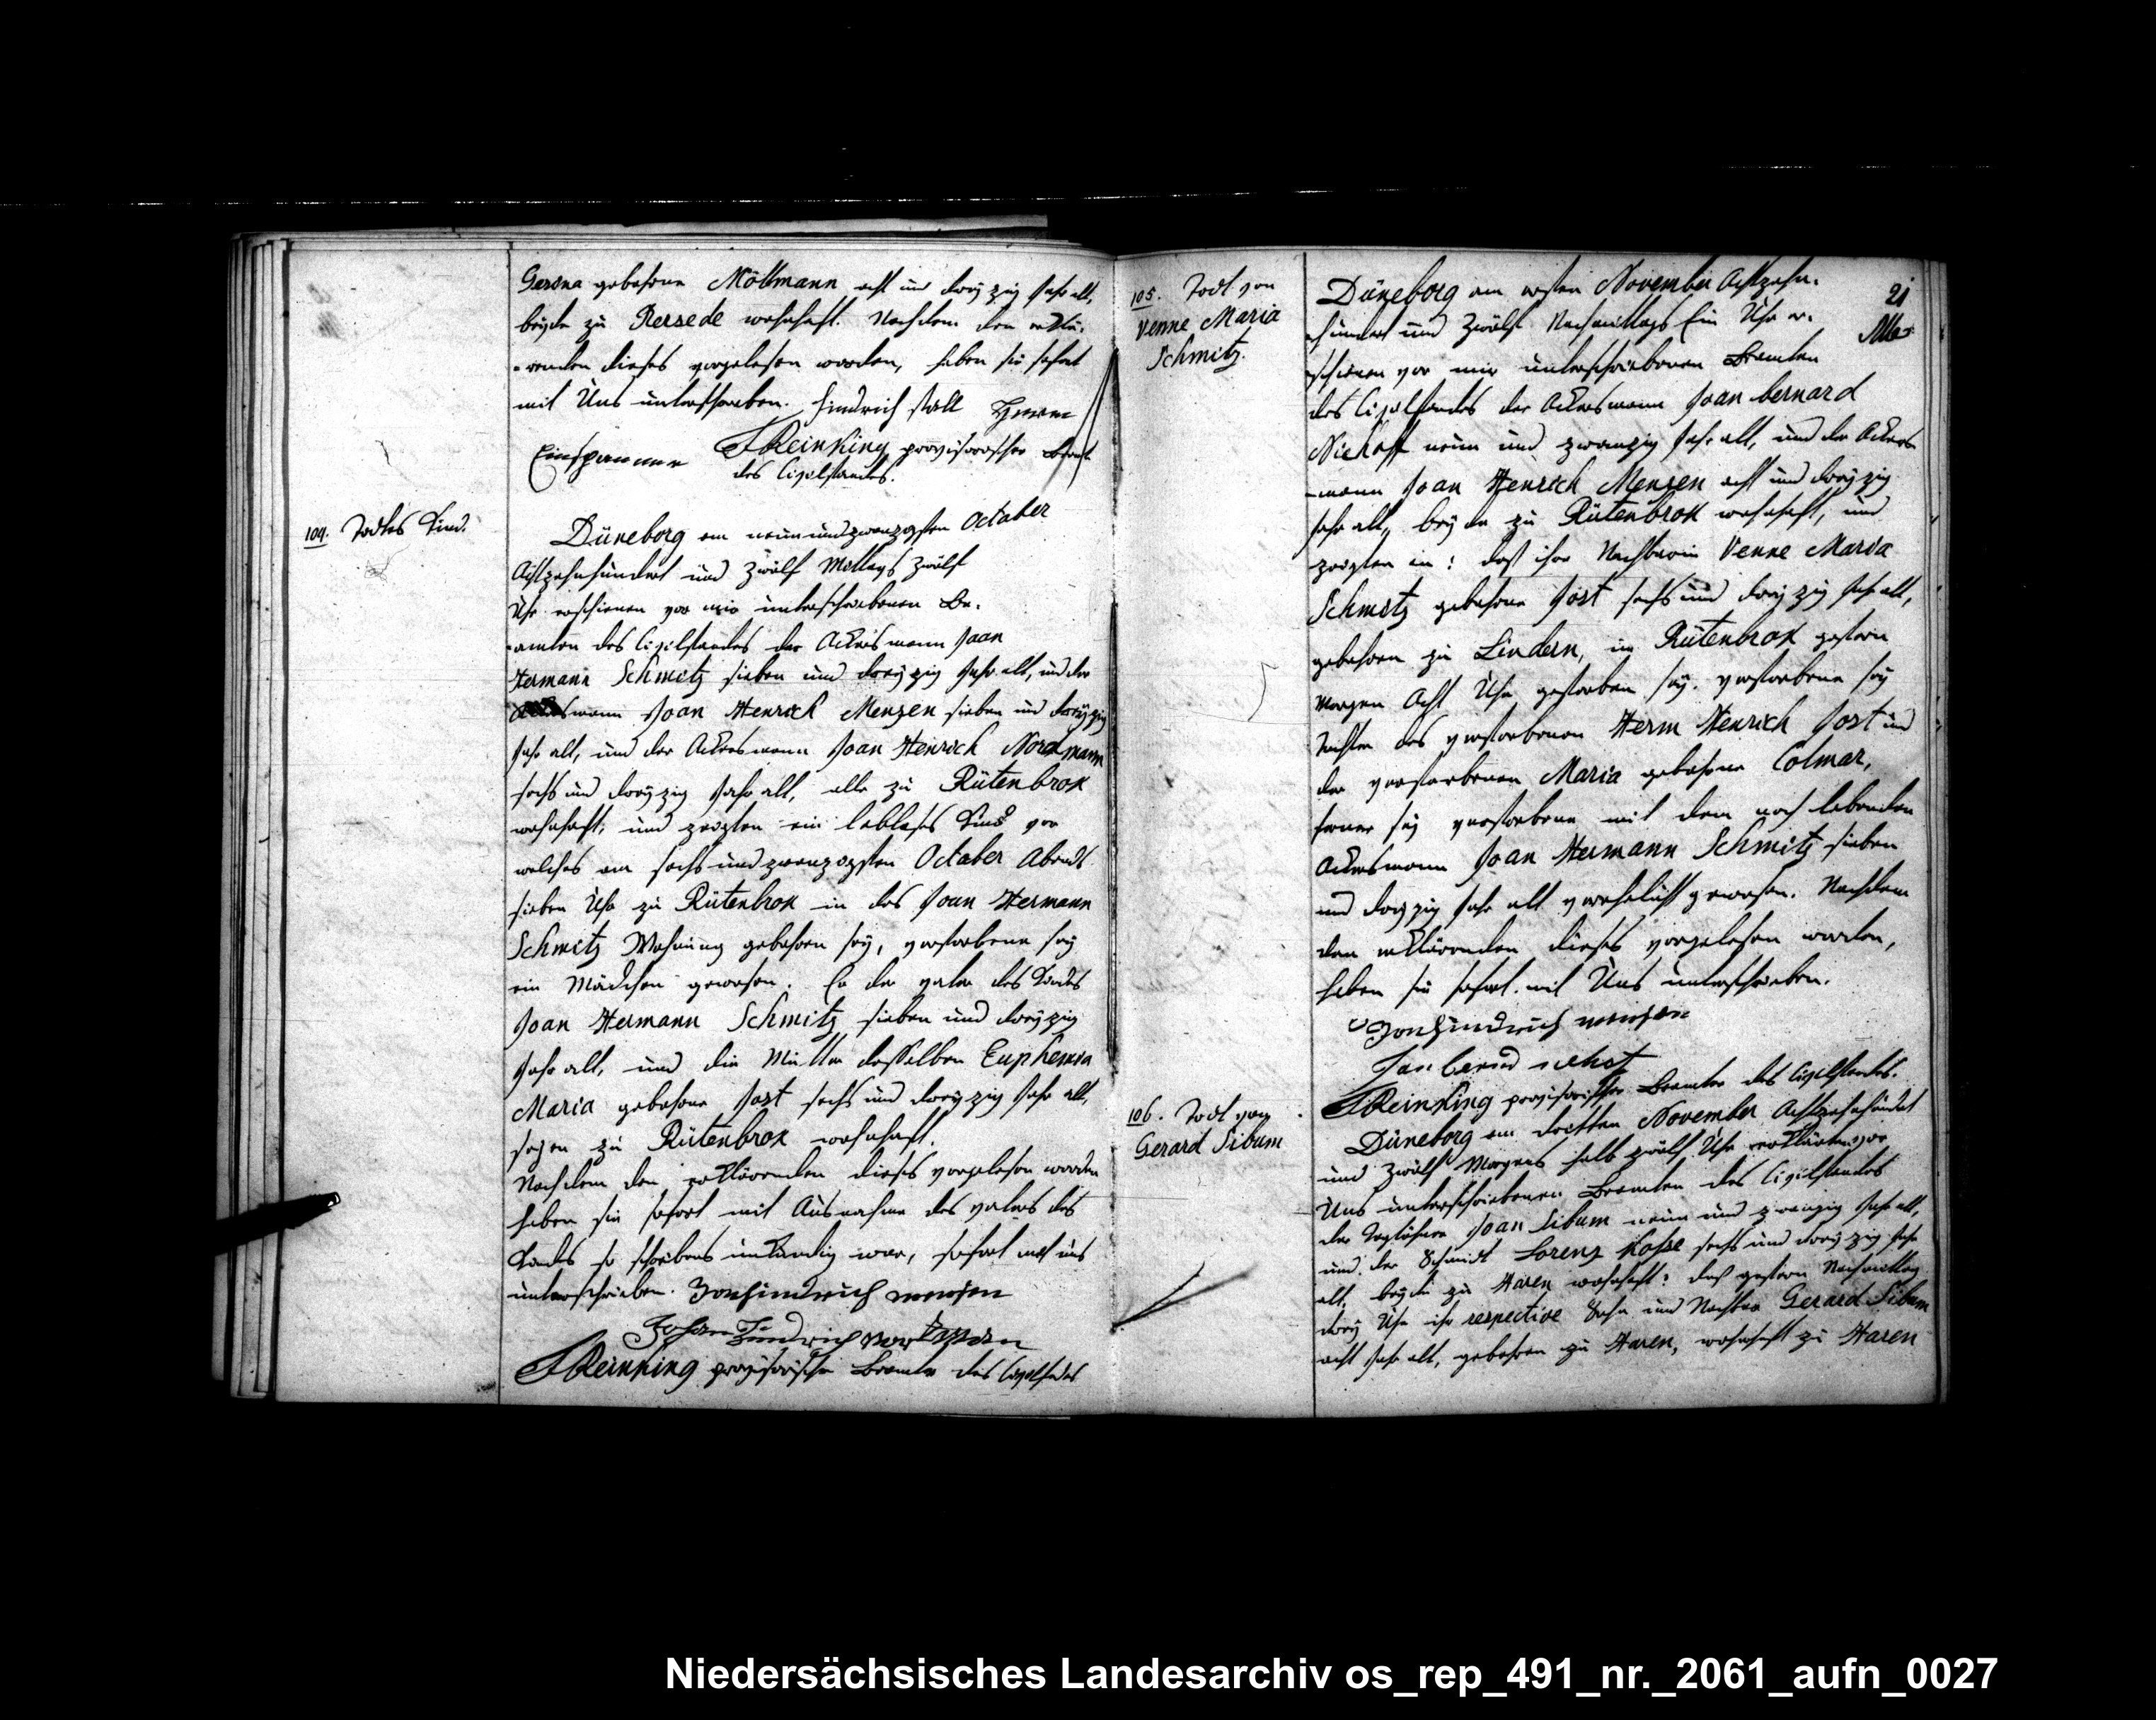 Gesena gebohrne Möllmann acht und dreÿzig Jahr alt,
beÿde zu Rersede wohnhaft. Nachdem den erklä-
-renden dieses vorgelesen worden, haben sie sofort
mit Uns unterschrieben. Hindrich stall Herm
Einspanner FReinking provisorischer Beamt
des Civilstandes.
104. Todtes Kind.
Düneborg am neunundzwanzigsten October
Achtzehnhundert und Zwölf Mittags zwölf
Uhr erschienen vor mir unterschriebenen Be-
-amten des Civilstandes der Ackersmann Joan
Hermann Schmitz sieben und dreÿzig Jahr alt, und der
Ackersmann Joan Henrich Menzen sieben und dreÿzig
Jahr alt, und der Ackersmann Joan Heinrich Nordmann
sechs und dreÿzig Jahr alt, alle zu Rütenbrok
wohnhaft, und zeigten ein lebloses Kind vor
welches am sechs und zwanzigsten October Abends
sieben Uhr zu Rütenbrok in des Joan Hermann
Schmitz Wohnung gebohren seÿ, verstorbene seÿ
ein Mädchen gewesen. Er der Vater des Kindes
Joan Hermann Schmitz sieben und dreÿzig
Jahr alt, und die Mutter desselben Euphemia
Maria gebohrne Jost sechs und dreÿzig Jahr alt,
seÿen zu Rütenbrok wohnhaft.
Nachdem den erklärenden dieses vorgelesen worden
haben sie sofort mit Ausnahme des Vaters des
Kindes so schreibens unkundig war, sofort mit uns
unterschrieben. Jonhindrich mensen
Johan Hindrich
FReinking provisorischer Beamte des Civilstandes
105. Todt von
Venne Maria
Schmitz.
21
Düneborg am ersten November Achtzehn-
-hundert und Zwölf Nachmittags Ein Uhr er-
-schienen vor mir unterschriebenen Beamten
des Civilstandes der Ackersmann Joan bernard
Niehoff neun und zwanzig Jahr alt, und der Ackers-
-mann Joan Henrich Menzen acht und dreÿzig
Jahr alt, beÿde zu Rütenbrok wohnhaft, und
zeigten an: daß ihre Nachbarin Venne Maria
Schmitz gebohrne Jost sechs und dreÿzig Jahr alt,
gebohren zu Lindern, in Rütenbrok gestern
Morgen Acht Uhr gestorben seÿ. verstorbene seÿ
Tochter des verstorbenen Herm Henrich Jost und
der verstorbenen Maria gebohrne Colmar,
ferner seÿ verstorbene mit dem noch lebenden
Ackersmann Joan Hermann Schmitz sieben
und dreÿzig Jahr alt verehelicht gewesen. Nachdem
den erklärenden dieses vorgelesen worden,
haben sie sofort mit Uns unterschrieben.
Jonhindrich mensen
Jan bernd niehof
FReinking provisorischer Beamter des Civilstandes.
106. Todt von
Gerard Sibum
Düneborg am dritten November Achtzehnhundert
und Zwölf Morgens halb zwölf Uhr erklärten vor
Uns unterschriebenen Beamten des Civilstandes
der Taglöhner Joan Sibum neun und zwanzig Jahr alt,
und der Schmidt Lorenz Kosse sechs und dreÿzig Jahr
alt, beÿde zu Haren wohnhaft: daß gestern Nachmittag
dreÿ Uhr ihr respective Sohn und Nachbar Gerard Sibum
acht Jahr alt, gebohren zu Haren, wohnhaft zu Haren
Niedersächsisches Landesarchiv os_rep_491_nr._2061_aufn_0027